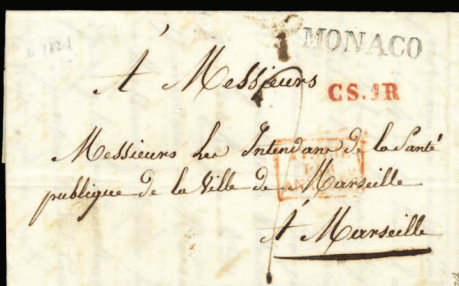 1821
MONACO
À Messieurs
CS.1R
Messieurs Les Intendans de la Santé
publique de la Ville de Marseille
À Marseille